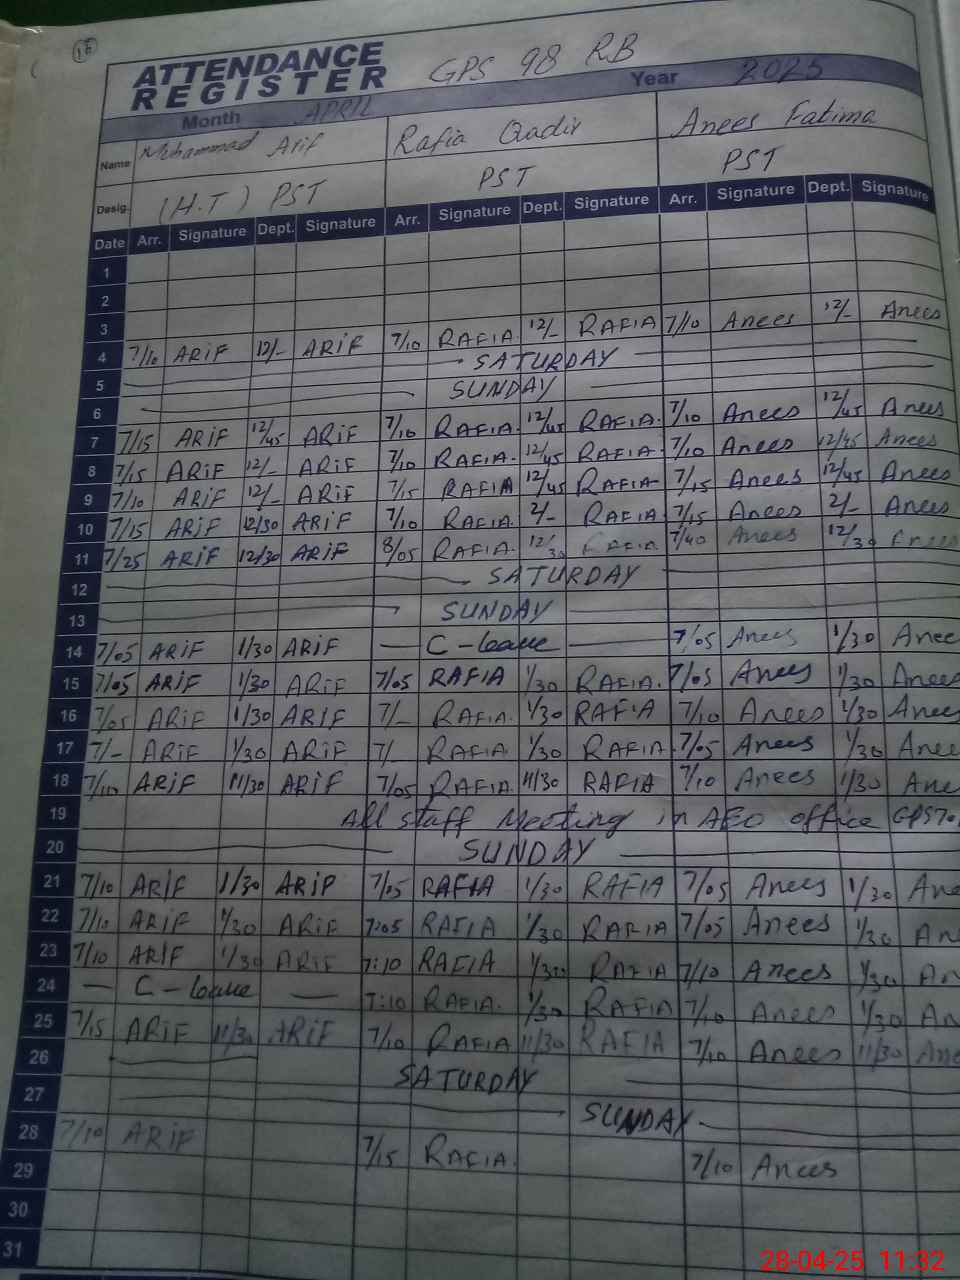 18
ATTENDANCE
REGISTER GPS 98 RB
Month APRIL Year 2025
Name Muhammad Arif Rafia Qadir Anees Fatima
Desig. (H.T) PST PST PST
Date Arr. Signature Dept. Signature Arr. Signature Dept. Signature Arr. Signature Dept. Signature
1
2
3
4 7/10 ARiF 12/- ARiF 7/10 RAFIA 12/- RAFIA 7/10 Anees 12/- Anees
5 SATURDAY
6 SUNDAY
7 7/15 ARiF 12/45 ARiF 7/10 RAFIA. 12/45 RAFIA. 7/10 Anees 12/45 Anees
8 7/15 ARiF 12/- ARiF 7/10 RAFIA. 12/45 RAFIA. 7/10 Anees 12/45 Anees
9 7/10 ARiF 12/- ARiF 7/15 RAFIA 12/45 RAFIA 7/15 Anees 12/45 Anees
10 7/15 ARiF 12/30 ARiF 7/10 RAFIA. 2/- RAFIA 7/15 Anees 2/- Anees
11 7/25 ARiF 12/30 ARiF 8/05 RAFIA. 12/30 7/40 Anees 12/30
12 SATURDAY
13 SUNDAY
14 7/05 ARiF 1/30 ARiF — C-leave — 7/05 Anees 1/30 Anee
15 7/05 ARiF 1/30 ARiF 7/05 RAFIA 1/30 RAFIA. 7/05 Anees 1/30 Anees
16 7/05 ARiF 1/30 ARiF 7/- RAFIA. 1/30 RAFIA 7/10 Anees 1/30 Anees
17 7/- ARiF 1/30 ARiF 7/- RAFIA 1/30 RAFIA. 7/05 Anees 1/30 Anee
18 7/10 ARiF 11/30 ARiF 7/05 RAFIA. 11/30 RAFIA 7/10 Anees 11/30 Ane
19 All staff Meeting in AEO office
20 SUNDAY
21 7/10 ARiF 1/30 ARiP 7/05 RAFIA 1/30 RAFIA 7/05 Anees 1/30 Ane
22 7/10 ARiF 1/30 ARiF 7:05 RAFIA 1/30 RAFIA 7/05 Anees 1/30 An
23 7/10 ARiF 1/30 ARiF 7:10 RAFIA 1/30 RAFIA 7/10 Anees 1/30 An
24 — C-leave — 7:10 RAFIA. 1/30 RAFIA 7/10 Anees 1/30 An
25 7/15 ARiF 11/30 ARiF 7/10 RAFIA 11/30 RAFIA 7/10 Anees 11/30 Ane
26 SATURDAY
27 SUNDAY
28 7/10 ARiF 7/15 RAFIA. 7/10 Anees
29
30
31
28-04-25 11:32